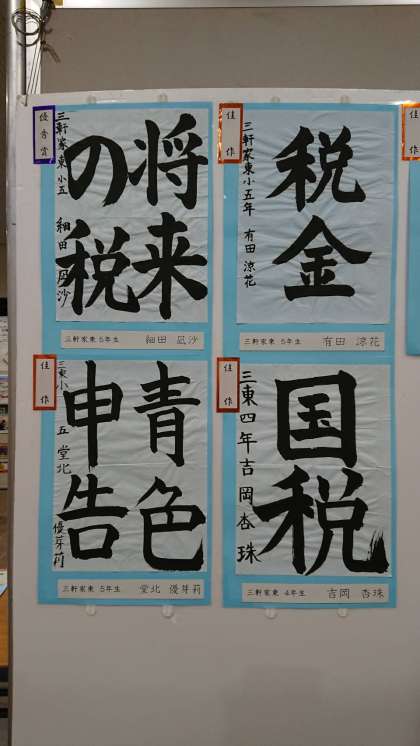 優秀賞
将来
の税
三軒家東小五 細田 凪沙
三軒家東 5年生 細田 凪沙
佳作
税金
三軒家東小五年 有田 涼花
三軒家東 5年生 有田 涼花
佳作
青色
申告
三東小 五 堂北 優芽莉
三軒家東 5年生 堂北 優芽莉
佳作
国税
三東四年吉岡杏珠
三軒家東 4年生 吉岡 杏珠
佳作